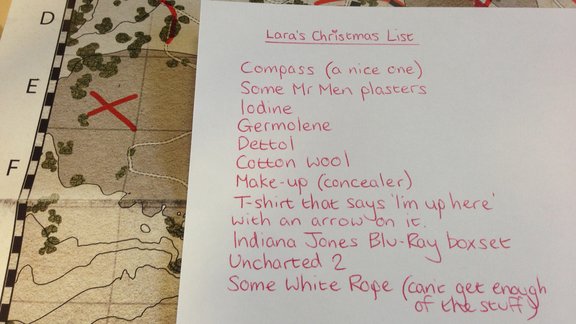 D
E
F
Lara's Christmas List
Compass (a nice one)
Some Mr Men plasters
Iodine
Germolene
Dettol
Cotton wool
Make-up (concealer)
T-shirt that says 'I'm up here'
with an arrow on it.
Indiana Jones Blu-Ray boxset
Uncharted 2
Some White Rope (can't get enough
of the stuff)